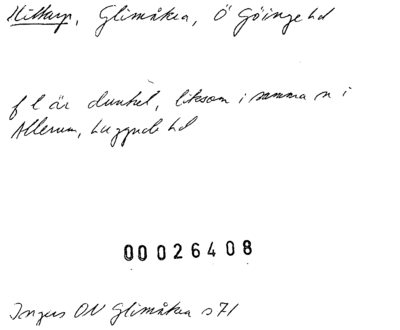 Hittarp, Glimåkra, Ö Göinge hd
f l är dunkel, liksom i samma n i
Allerum, Luggude hd
00026408
Ingers ON Glimåkra s 71